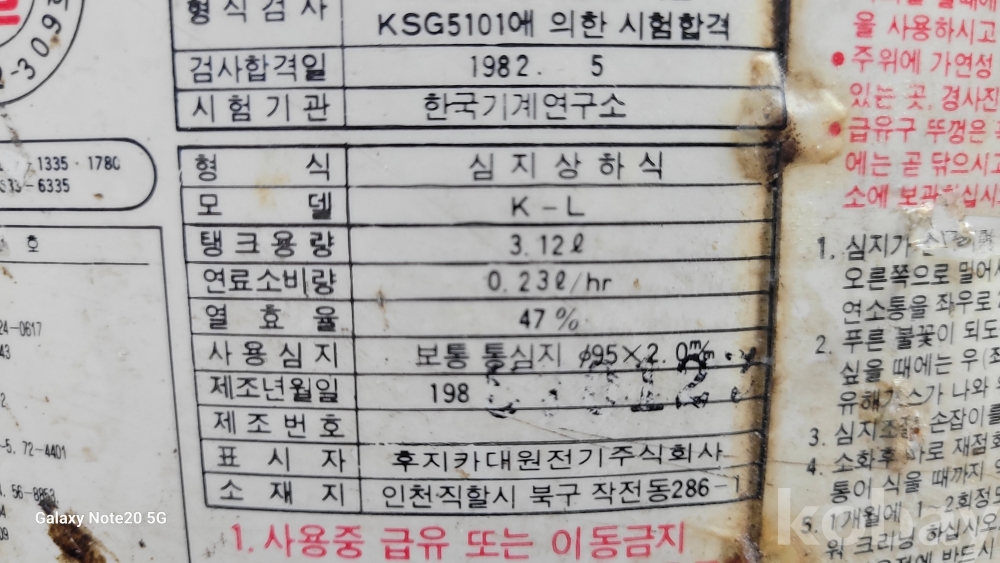 형식검사
KSG5101에 의한 시험합격
검사합격일 1982. 5
시험기관 한국기계연구소
형 식 심지상하식
모 델 K-L
탱크용량 3.12ℓ
연료소비량 0.23ℓ/hr
열효율 47%
사용심지 보통 통심지 φ95×2.0㎜
제조년월일 198
제조번호
표시자 후지카대원전기주식회사
소재지 인천직할시 북구 작전동286-1
1.사용중 급유 또는 이동금지
-3095
1335-1780
-6335
호
24-0617
43
2
-5. 72-4401
56-8863
09
을 사용하시고
● 주위에 가연성
있는 곳, 경사진
● 급유구 뚜껑은
에는 곧 닦으시고
소에 보관하십시
1. 심지가
오른쪽으로 밀어
연소통을 좌우로
2. 푸른 불꽃이 되도
싶을 때에는 우(좌
유해가스가 나와
3. 심지조절 손잡이를
4. 소화후 바로 재점화
통이 식을 때까지
5. 1개월에 1-2회정도
워 크리닝 하십시오
반드시
Galaxy Note20 5G